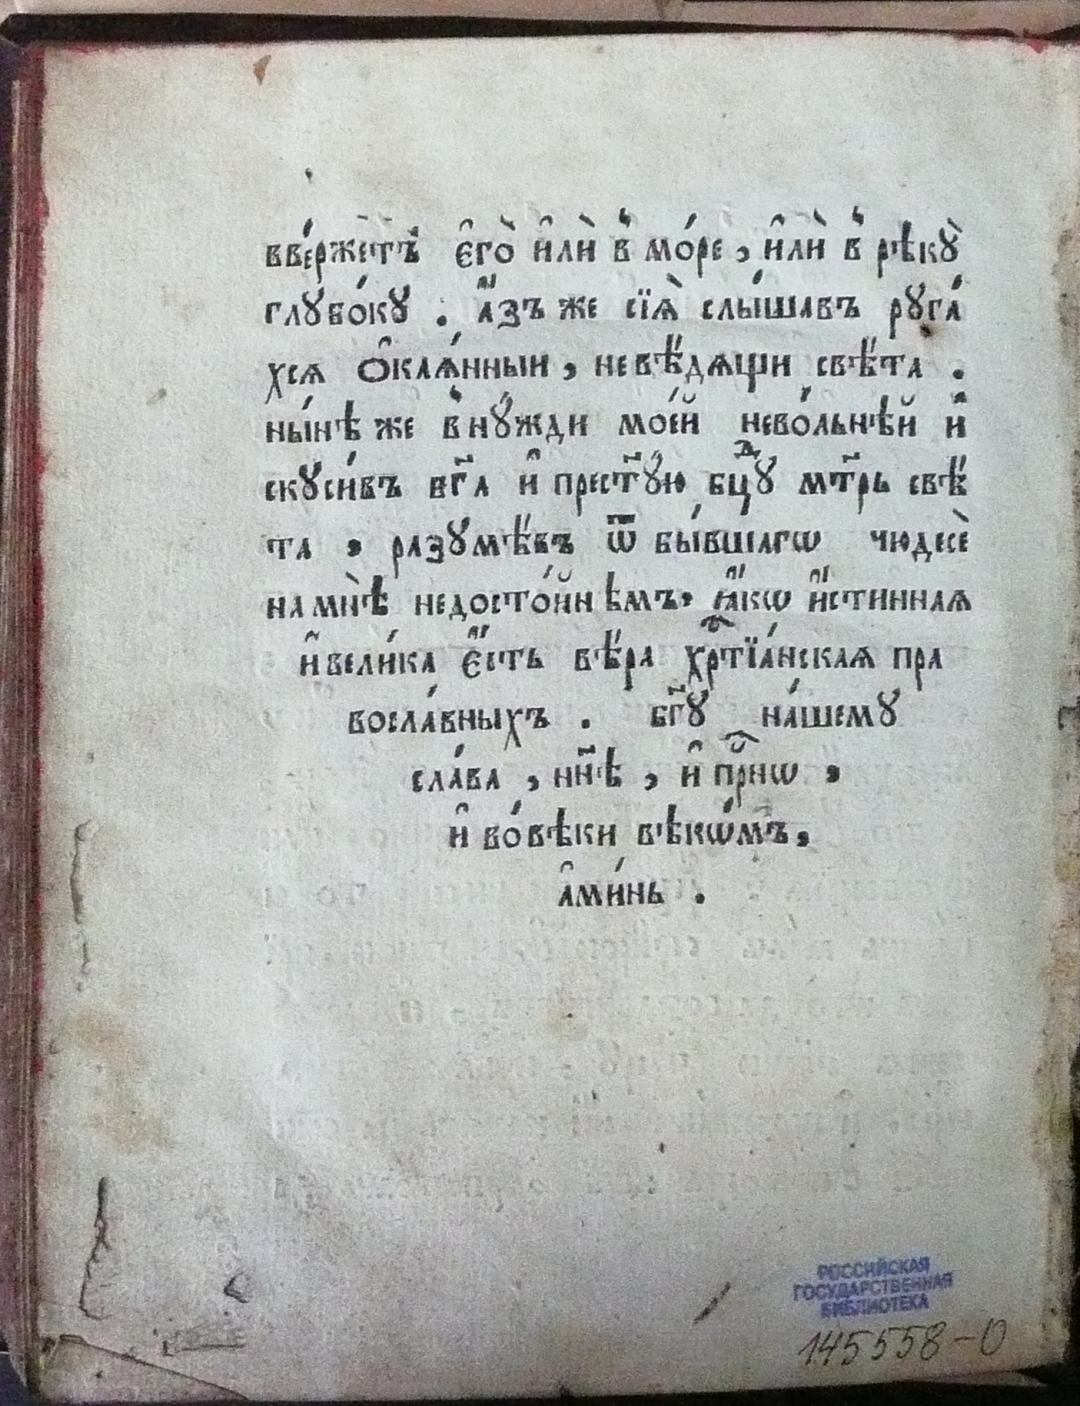 вве́ржетъ є҆го̀ и҆лѝ в̾ мо́ре , и҆лѝ в̾ рѣкꙋ̀
глꙋбо́кꙋ . а҆́зъ же сїѧ̀ слы́шавъ рꙋга́
хсѧ ѻ҆каѧ́нныи , не вѣ́дѧщи свѣ́та .
ны́нѣ же в̾ нꙋ́жди мое́й нево́льнѣй и҆
скꙋси́въ бг҃а и҆ прест҃ꙋ́ю бцⷣꙋ мт҃рь свѣ́
та , разꙋмѣ́въ ѿ бы́вшагѡ чюдесѐ
на мнѣ̀ недосто́йнѣмъ, ꙗ҆́кѡ и҆́стиннаѧ
и҆ вели́ка є҆́сть вѣ́ра хрⷭ҇тїа́нскаѧ пра
восла́вныхъ . бг҃ꙋ на́шемꙋ
сла́ва , нн҃ѣ , и҆ прⷭ҇нѡ ,
и҆ во́вѣки вѣкѡ́мъ ,
а҆ми́нь .
РОССИЙСКАЯ
ГОСУДАРСТВЕННАЯ
БИБЛИОТЕКА
145558-О